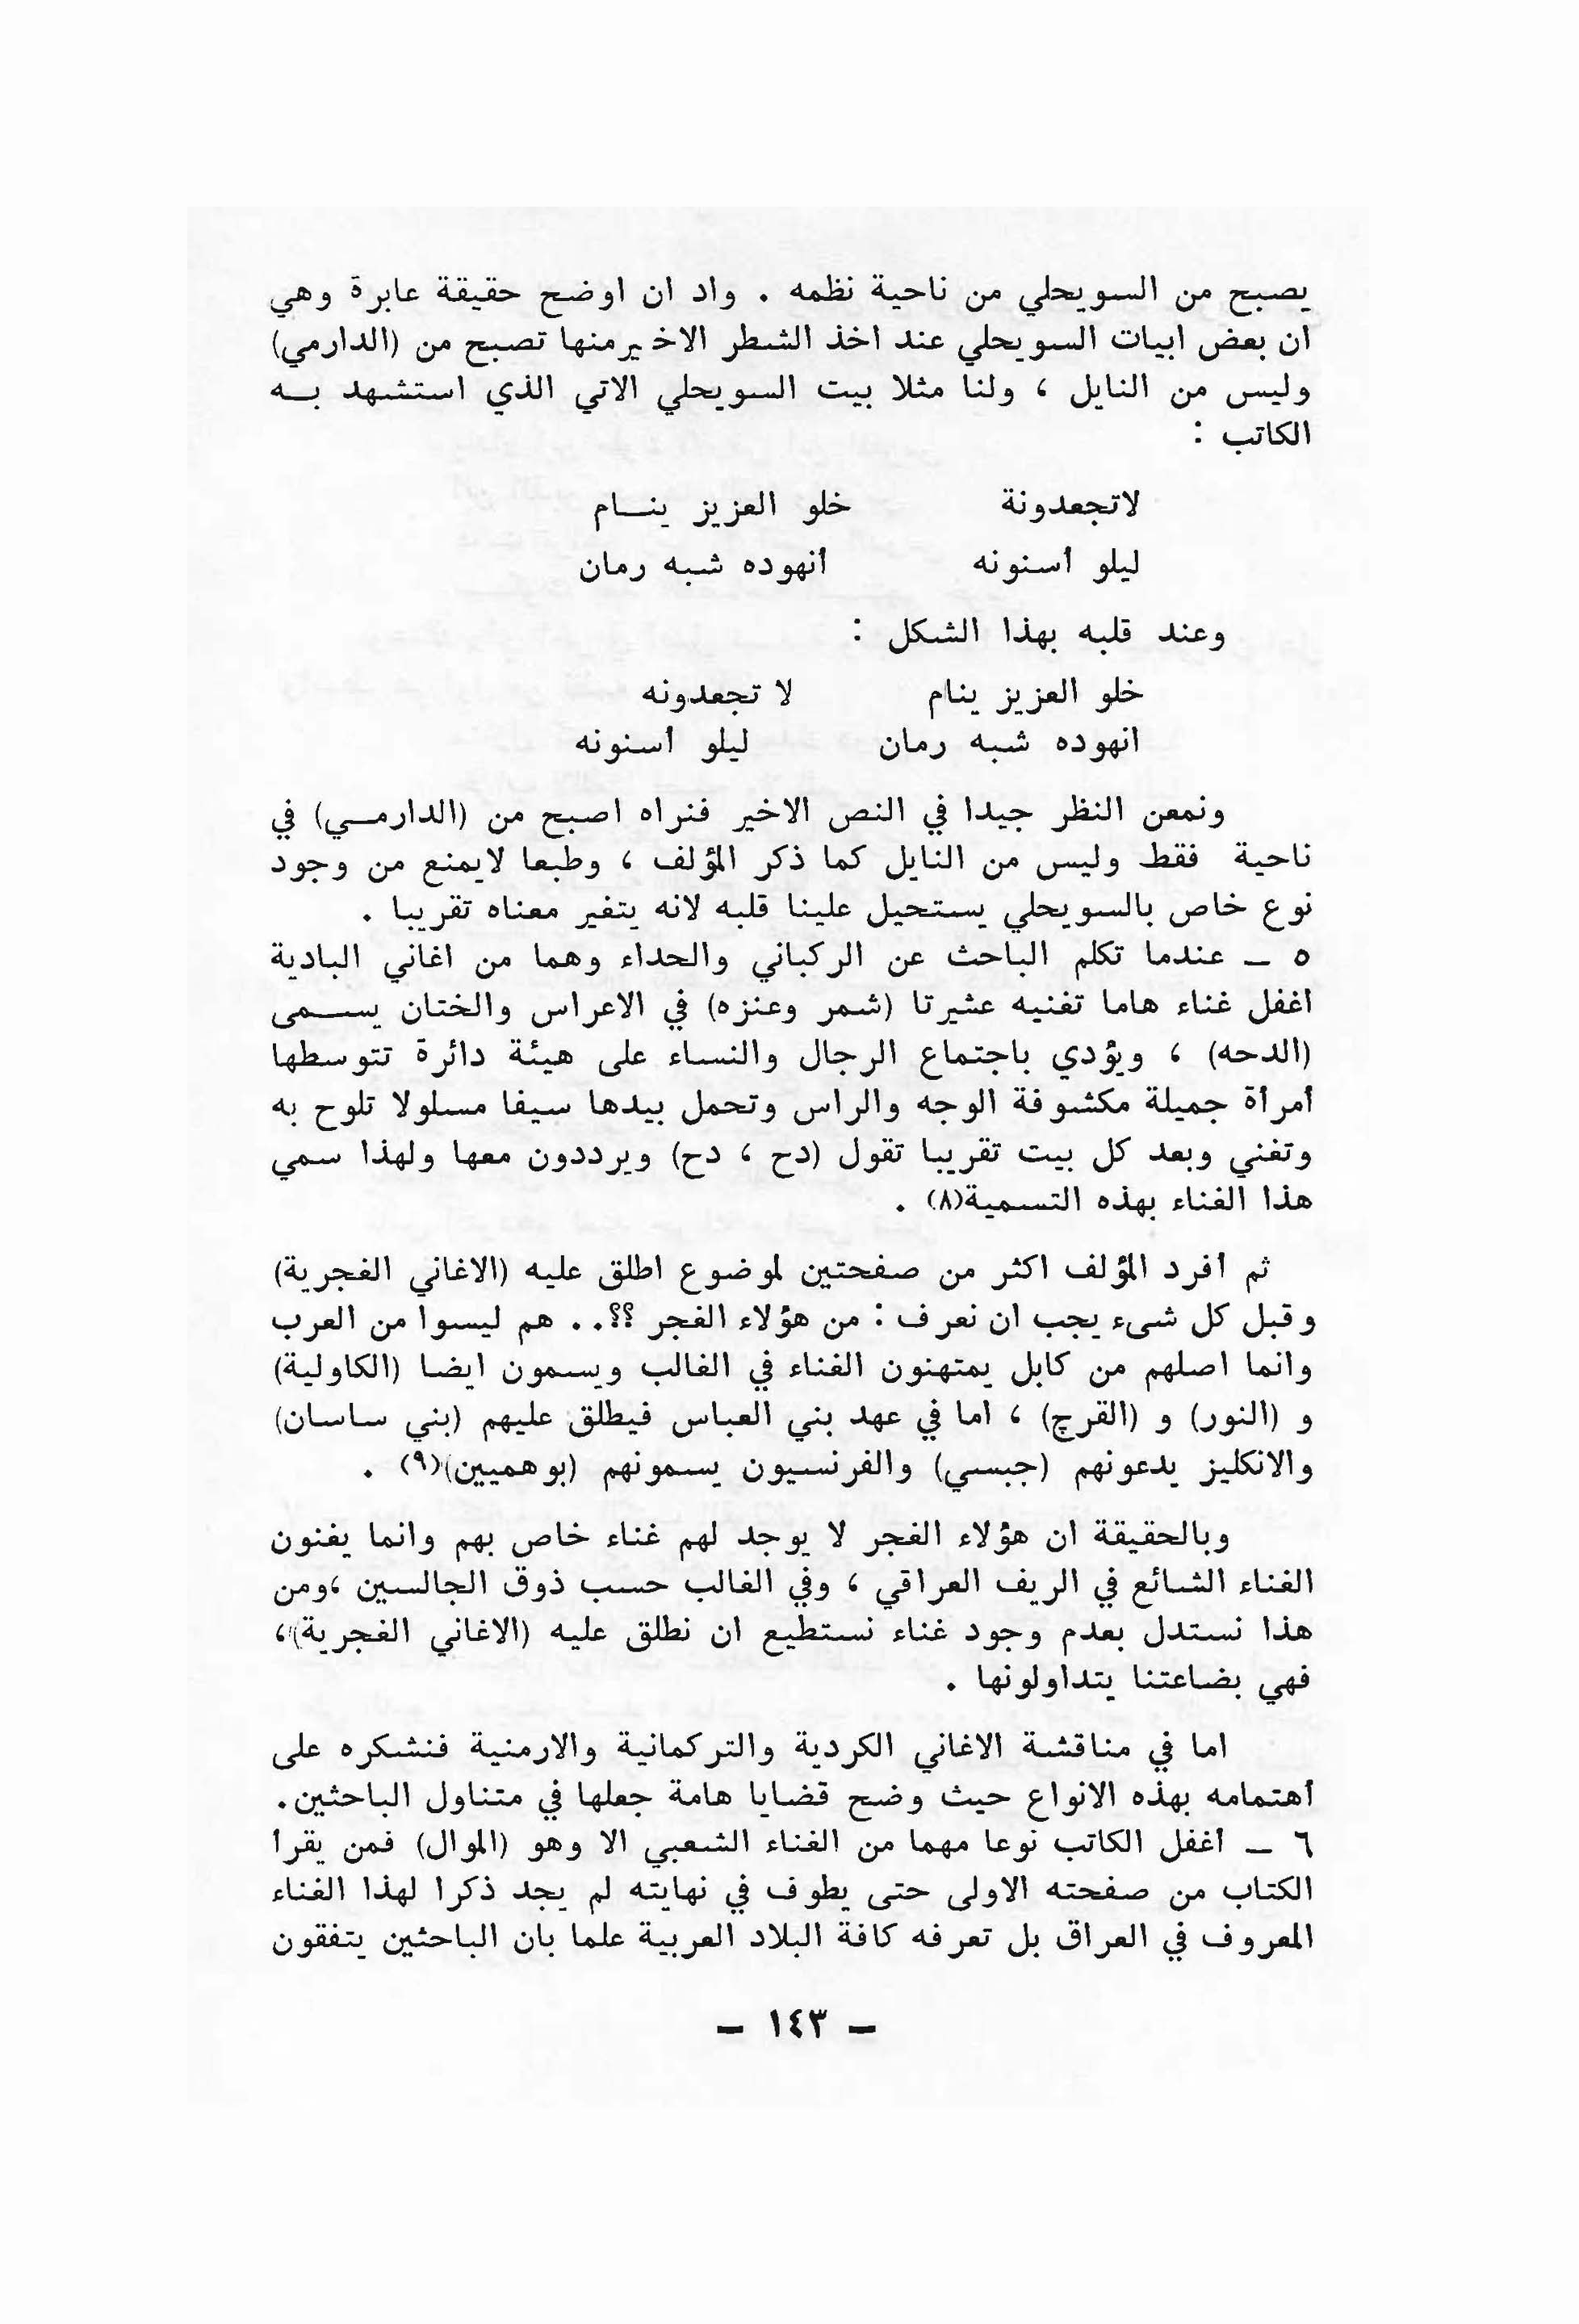 يصبح من السويحلي من ناحية نظمه . واد ان اوضح حقيقة عابرة وهي
ان بعض ابيات السويحلي عند اخذ الشطر الاخير منها تصبح من (الدارمي)
وليس من النايل ، ولنا مثلا بيت السويحلي الاتي الذي استشهد بـه
الكاتب :
لاتجعدونة خلو العزيز ينـام
ليلو أسنونه أنهوده شبه رمان
وعند قلبه بهذا الشكل :
خلو العزيز ينام لا تجعدونه
انهوده شبه رمان ليلو أسنونه
ونمعن النظر جيدا في النص الاخير فنراه اصبح من (الدارمـي) في
ناحية فقط وليس من النايل كما ذكر المؤلف ، وطبعا لايمنع من وجود
نوع خاص بالسويحلي يستحيل علينا قلبه لانه يتغير معناه تقريبا .
٥ ــ عندما تكلم الباحث عن الركباني والحداء وهما من اغاني البادية
اغفل غناء هاما تغنيه عشيرتا (شمر وعنزه) في الاعراس والختان يسـمى
(الدحه) ، ويؤدي باجتماع الرجال والنساء على هيئة دائرة تتوسطها
أمرأة جميلة مكشوفة الوجه والراس وتحمل بيدها سيفا مسلولا تلوح به
وتغني وبعد كل بيت تقريبا تقول (دح ، دح) ويرددون معها ولهذا سمي
هذا الغناء بهذه التسمية(٨) .
ثم أفرد المؤلف اكثر من صفحتين لموضوع اطلق عليه (الاغاني الغجرية)
وقبل كل شىء يجب ان نعرف : من هؤلاء الغجر ؟؟.. هم ليسوا من العرب
وانما اصلهم من كابل يمتهنون الغناء في الغالب ويسمون ايضا (الكاولية)
و (النور) و (القرج) ، اما في عهد بني العباس فيطلق عليهم (بني ساسان)
والانكليز يدعونهم (جبسي) والفرنسيون يسمونهم (بوهميين)(٩) .
وبالحقيقة ان هؤلاء الغجر لا يوجد لهم غناء خاص بهم وانما يغنون
الغناء الشائع في الريف العراقي ، وفي الغالب حسب ذوق الجالسين ،ومن
هذا نستدل بعدم وجود غناء نستطيع ان نطلق عليه (الاغاني الغجرية)،
فهي بضاعتنا يتداولونها .
اما في مناقشة الاغاني الكردية والتركمانية والارمنية فنشكره على
أهتمامه بهذه الانواع حيث وضح قضايا هامة جعلها في متناول الباحثين.
٦ ــ أغفل الكاتب نوعا مهما من الغناء الشعبي الا وهو (الموال) فمن يقرأ
الكتاب من صفحته الاولى حتى يطوف في نهايته لم يجد ذكرا لهذا الغناء
المعروف في العراق بل تعرفه كافة البلاد العربية علما بان الباحثين يتفقون
ــ ١٤٣ ــ